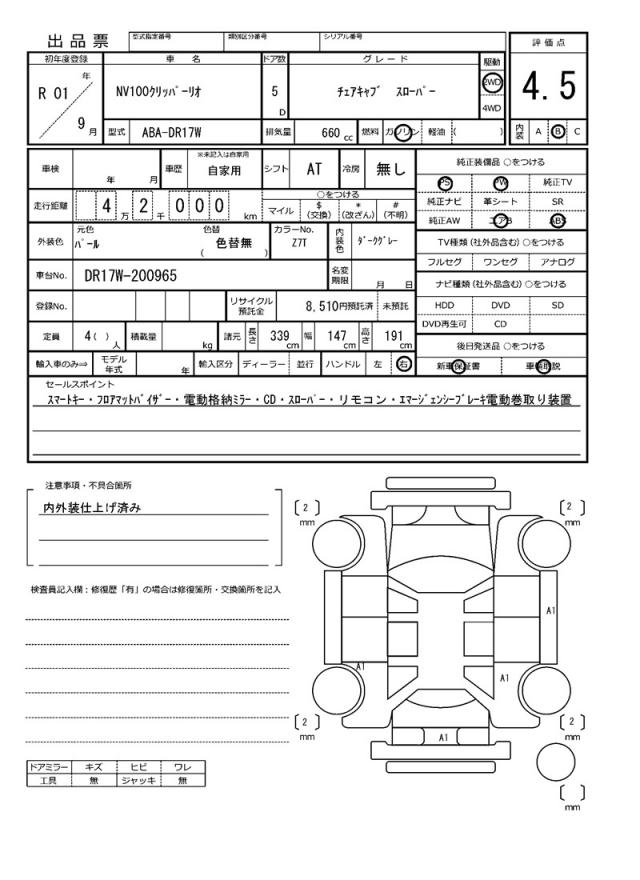 出品票 型式指定番号 類別区分番号 シリアル番号
評価点
初年度登録 車 名 ドア数 グレード 駆動
R 01 年 NV100クリッパーリオ 5 D チェアキャブ スローパー 2WD 4.5
4WD
9 月 型式 ABA-DR17W 排気量 660 cc 燃料 ガソリン 軽油 ( ) 内装 A B C
車検 年 月 車歴 ※未記入は自家用 自家用 シフト AT 冷房 無し 純正装備品 ○をつける
PS PW 純正TV
走行距離 4 万 2 千 0 0 0 km ○をつける 純正ナビ 革シート SR
マイル $ (交換) * (改ざん) # (不明) 純正AW エアB ABS
外装色 元色 パール 色替 ( 色替無 ) カラーNo. Z7T 内装色 ダークグレー TV種類 (社外品含む) ○をつける
フルセグ ワンセグ アナログ
車台No. DR17W-200965 名変期限 月 日 ナビ種類 (社外品含む) ○をつける
登録No. リサイクル預託金 8,510円預託済 未預託 HDD DVD SD
DVD再生可 CD
定員 4( ) 人 積載量 kg 諸元 長さ 339 cm 幅 147 cm 高さ 191 cm 後日発送品 ○をつける
輸入車のみ⇒ モデル年式 年 輸入区分 ディーラー 並行 ハンドル 左 右 新車保証書 車輌取説
セールスポイント
スマートキー・フロアマットバイザー・電動格納ミラー・CD・スローパー・リモコン・エマージェンシーブレーキ電動巻取り装置
注意事項・不具合箇所
内外装仕上げ済み
2 mm
2 mm
検査員記入欄：修復歴「有」の場合は修復箇所・交換箇所を記入
A1
A1
A1
2 mm
2 mm
A1
ドアミラー キズ ヒビ ワレ
工具 無 ジャッキ 無
mm